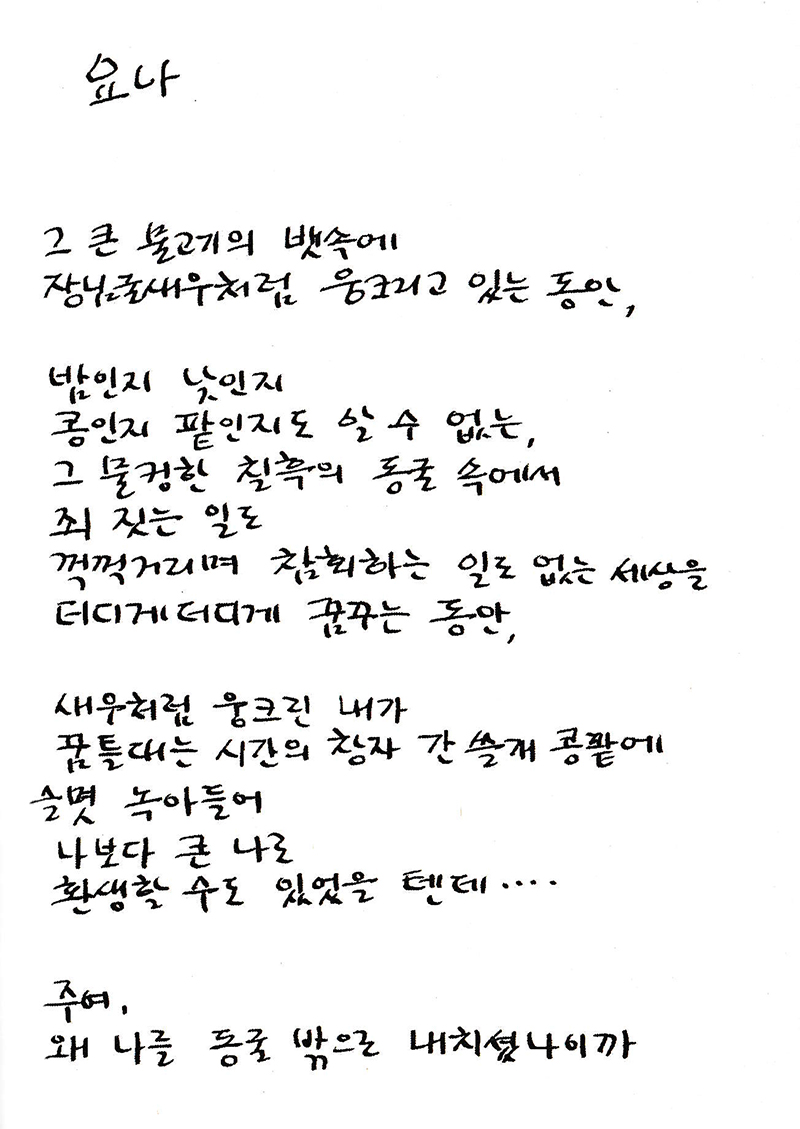 요나
그 큰 물고기의 뱃속에
장님굴새우처럼 웅크리고 있는 동안,
밤인지 낮인지
콩인지 팥인지도 알 수 없는,
그 물컹한 칠흑의 동굴 속에서
죄 짓는 일도
꺽꺽거리며 참회하는 일도 없는 세상을
더디게더디게 꿈꾸는 동안,
새우처럼 웅크린 내가
꿈틀대는 시간의 창자 간 쓸개 콩팥에
슬몃 녹아들어
나보다 큰 나로
환생할 수도 있었을 텐데····
주여,
왜 나를 동굴 밖으로 내치셨나이까